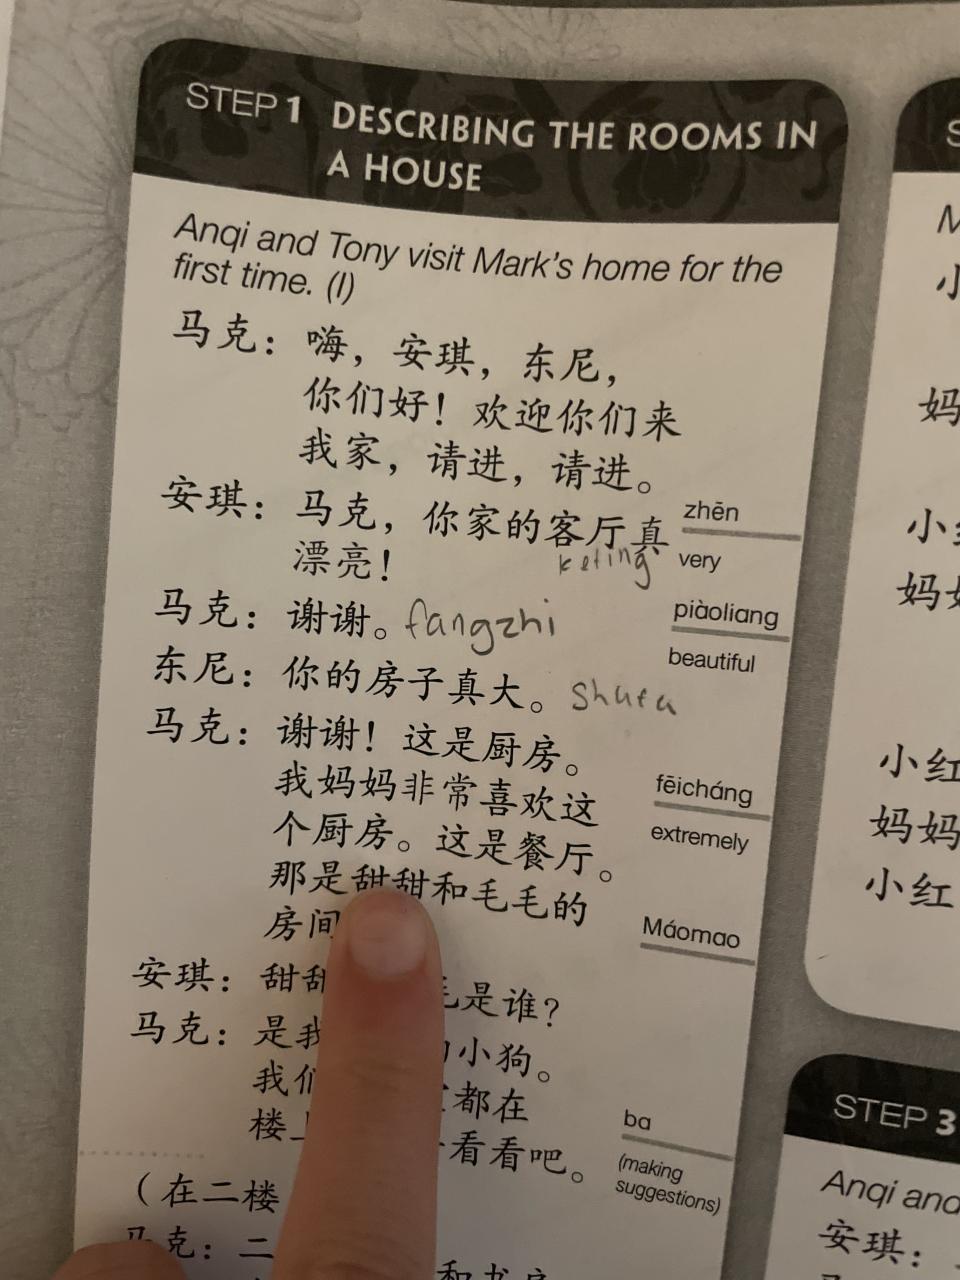 STEP 1 DESCRIBING THE ROOMS IN
A HOUSE
Anqi and Tony visit Mark's home for the
first time. (I)
马克：嗨，安琪，东尼，
你们好！欢迎你们来
我家，请进，请进。
安琪：马克，你家的客厅真
漂亮！
zhēn
very
keting
马克：谢谢。fangzhi
piàoliang
beautiful
东尼：你的房子真大。
马克：谢谢！这是厨房。
我妈妈非常喜欢这
个厨房。这是餐厅。
那是甜甜和毛毛的
房间
fēicháng
extremely
Máomao
安琪：甜甜 是谁？
马克：是我 小狗。
我们 都在
楼 看看吧。
ba
(making
suggestions)
（在二楼
马克：二 和书房
小
妈
小红
妈妈
小红
妈妈
小红
STEP 3
Anqi and
安琪：